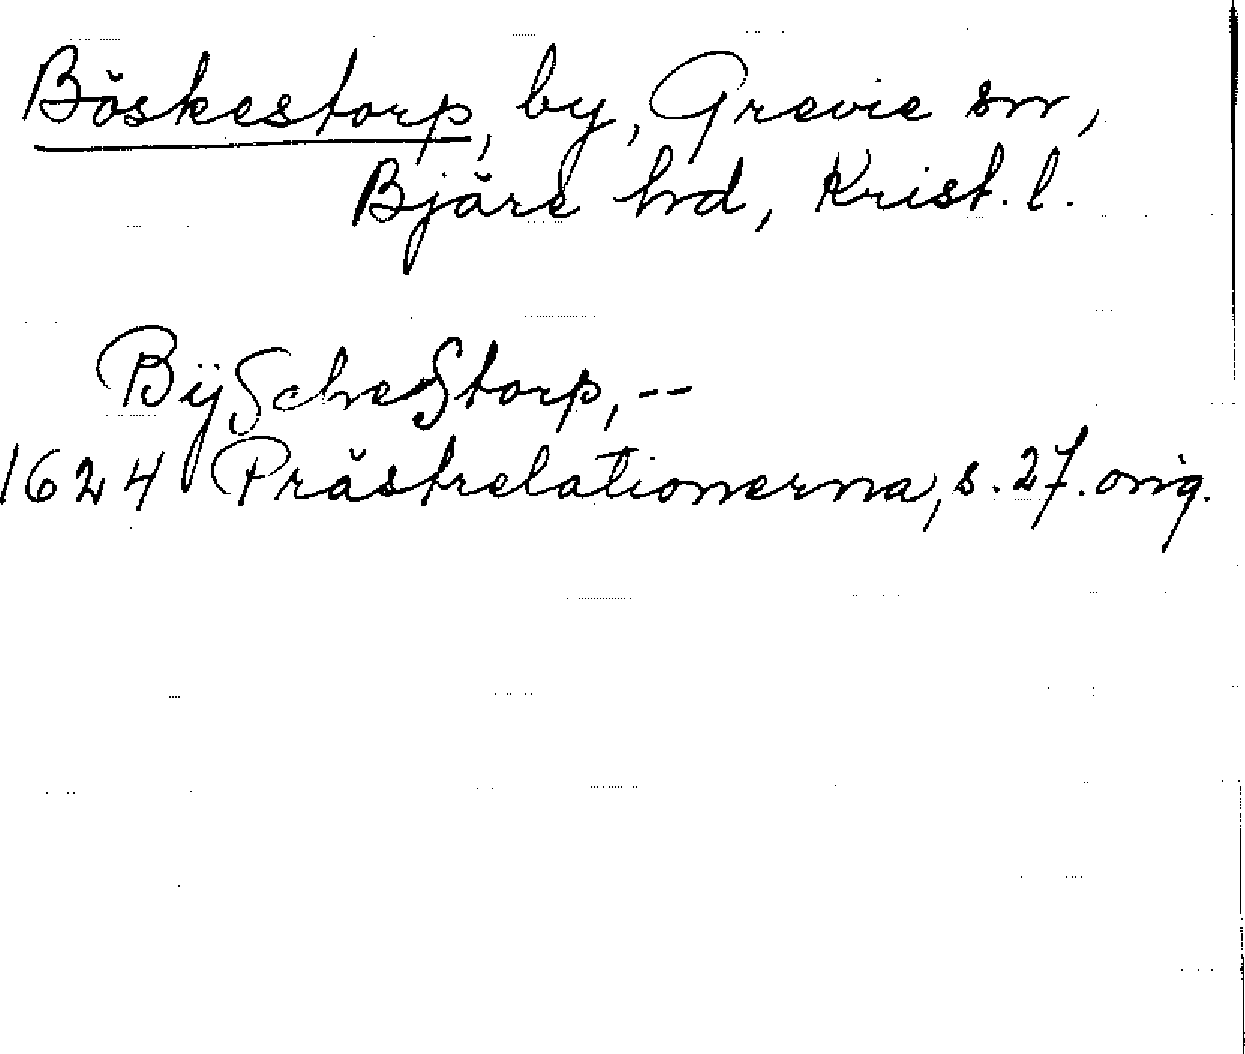 Böskestorp, by, Grevie sn,
Bjäre hd, Krist. l.
BÿScheStorp, --
1624 Prästrelationerna, s. 27. orig.